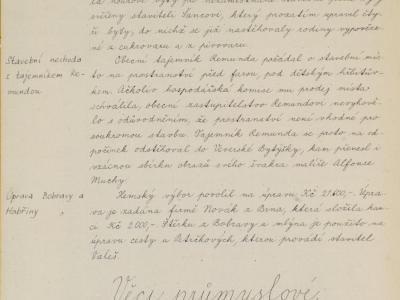 svěřeny staviteli Vancovi, který prozatím upravil čty-
ři byty, do nichž se již nastěhovaly rodiny vypověze-
né z cukrovaru a z pivovaru.
Stavební neshoda
s tajemníkem Re-
mundou.
Obecní tajemník Remunda požádal o stavební mís-
to na prostranství před farou, pod dětským hřbitův-
kem. Ačkoliv hospodářská komise mu prodej místa
schválila, obecní zastupitelstvo Remundovi nevyhově-
lo s odůvodněním, že prostranství není vhodné pro
soukromou stavbu. Tajemník Remunda se proto, na od-
počinek odstěhoval do Veverské Bytýšky, kam převezl i
vzácnou sbírku obrazů svého švakra malíře Alfonse
Muchy.
Úprava Bobravy a
Habřiny
Zemský výbor povolil na úpravu Kč 21800,-. Úpra-
va je zadána firmě Novák z Brna, která složila kau-
ci Kč 2000,-. Štěrku z Bobravy a mlýna je použito na
úpravu cesty u Petříčkových, kterou provádí stavitel
Valeš.
Věci průmyslové